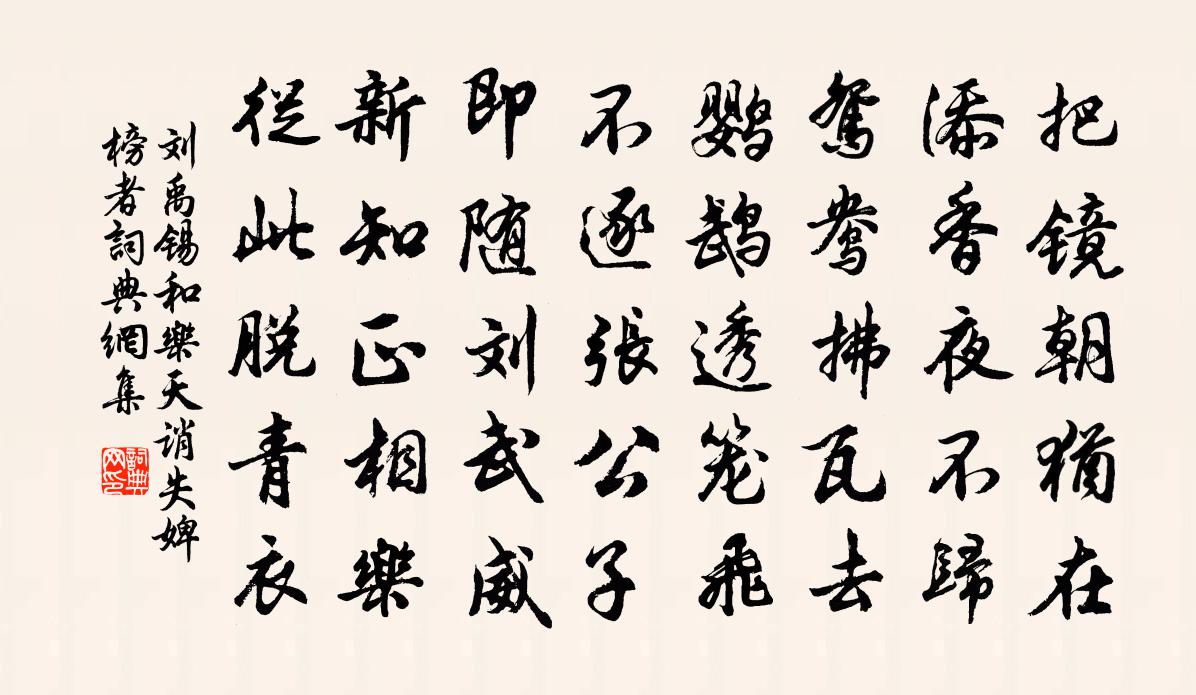 把镜朝犹在
添香夜不歸
鸳鸯拂瓦去
鹦鹉透笼飛
不逐張公子
即随刘武威
新知正相樂
從此脱青衣
刘禹锡和樂天诮失婢
榜者詞典網集
詞典网印